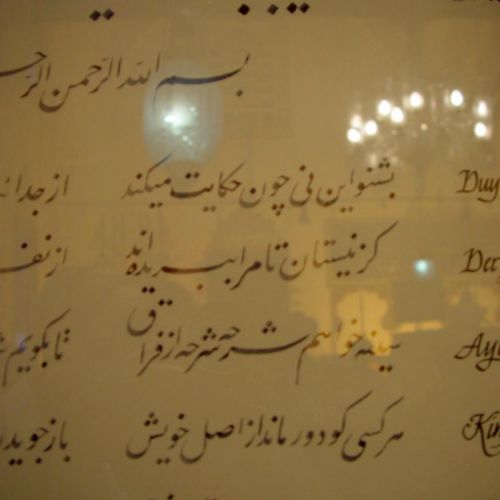 بسم الله الرحمن
بشنو این نی چون حکایت میکند از Duy
کز نیستان تا مرا ببریده‌اند از
سینه خواهم شرحه شرحه از فراق تا بگویم
هر کسی کو دور ماند از اصل خویش باز جوید